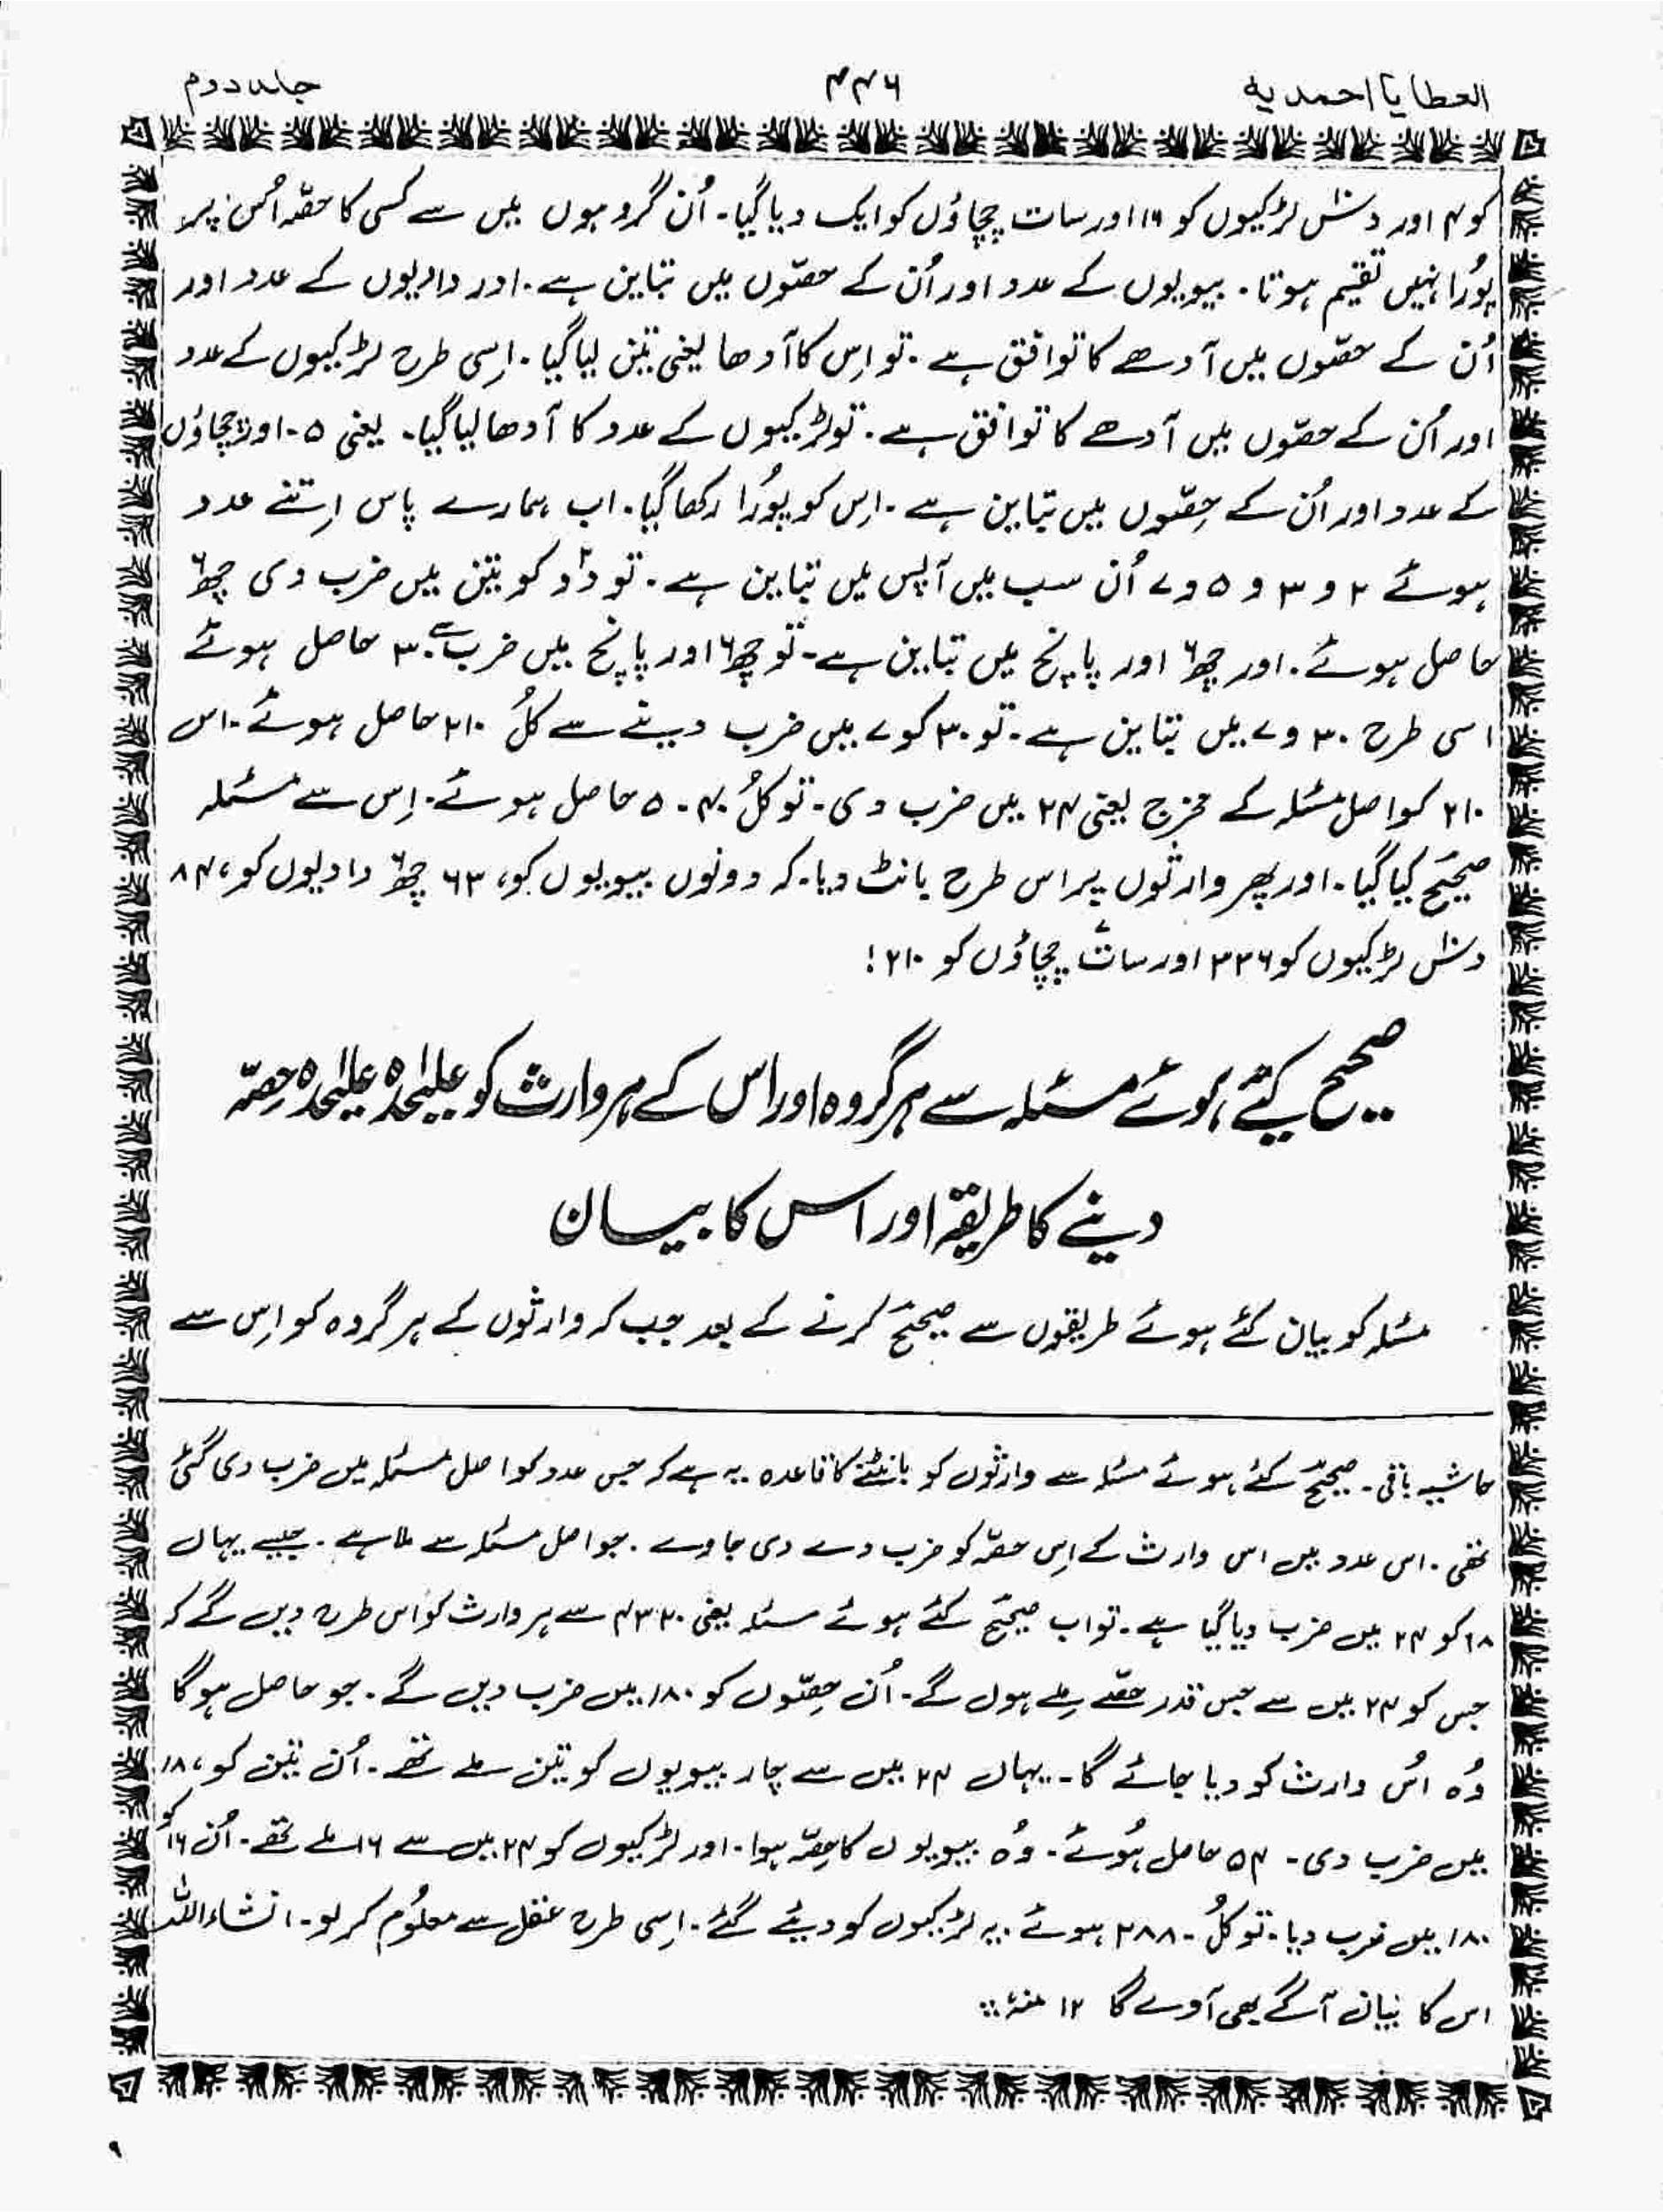 العطایا احمدیہ
۴۴۶
جلد دوم
کو ۴ اور دسؔ لڑکیوں کو ۱۶ اور سات چچاؤں کو ایک دیا گیا۔ اُن گروہوں میں سے کسی کا حصّہ اُس پر
پُورا نہیں تقیم ہوتا۔ بیویوں کے عدد اور اُن کے حصّوں میں تباین ہے۔ اور دادیوں کے عدد اور
اُن کے حصّوں میں آدھے کا توافق ہے۔ تو اِس کا آدھا یعنی تین لیا گیا۔ اِسی طرح لڑکیوں کے عدد
اور اُن کے حصّوں میں آدھے کا توافق ہے۔ تو لڑکیوں کے عدد کا آدھا لیا گیا۔ یعنی ۵۔ اور چچاؤں
کے عدد اور اُن کے حِصّوں میں تباین ہے۔ اِس کو پُورا رکھا گیا۔ اب ہمارے پاس اِتنے عدد
ہوئے ۲ و ۳ و ۵ و ۷ اُن سب میں آپس میں تباین ہے۔ تو دو۲ کو تین میں ضرب دی چھ۶
حاصل ہوئے۔ اور چھ۶ اور پانچ میں تباین ہے۔ تو چھ۶ اور پانچ میں ضرب سے ۳۰ حاصل ہوئے
اسی طرح ۳۰ و ۷ میں تباین ہے۔ تو ۳۰ کو ۷ میں ضرب دینے سے کلُ ۲۱۰ حاصل ہوئے۔ اس
۲۱۰ کو اصل مسٔلہ کے مخرج یعنی ۲۴ میں ضرب دی۔ تو کلُ ۵۰۴۰ حاصل ہوئے۔ اِس سے مسٔلہ
صحیح کیا گیا۔ اور پھر وارثوں پر اس طرح بانٹ دیا۔ کہ دونوں بیویوں کو، ۶۳ چھ۶ دادیوں کو، ۸۴
دسؔ لڑکیوں کو ۳۳۶ اور سات۷ چچاؤں کو ۲۱۰!
صحیح کیٔے ہوئے مسٔلہ سے ہر گروہ اور اس کے ہر وارث کو علیٰحدہ علیٰحدہ حِصّہ
دینے کا طریقہ اور اس کا بیان
مسٔلہ کو بیان کئے ہوئے طریقوں سے صحیح کرنے کے بعد جب کہ وارثوں کے ہر گروہ کو اِس سے
حاشیہ باقی۔ صحیح کئے ہوئے مسٔلہ سے وارثوں کو بانٹنے کا قاعدہ یہ ہے کہ جس عدد کو اصل مسٔلہ میں ضرب دی گئی
تھی۔ اس عدد میں اس وارث کے اِس حصّہ کو ضرب دے دی جاوے۔ جو اصل مسٔلہ سے ملا ہے۔ جیسے یہاں
۱۸ کو ۲۴ میں ضرب دیا گیا ہے۔ تو اب صحیح کئے ہوئے مسٔلہ یعنی ۴۳۲۰ سے ہر وارث کو اس طرح دیں گے کہ
جس کو ۲۴ میں سے جس قدر حصّے ملے ہوں گے۔ اُن حِصّوں کو ۱۸۰ میں ضرب دیں گے۔ جو حاصل ہو گا
وُہ اُس وارث کو دیا جائے گا۔ یہاں ۲۴ میں سے چار بیویوں کو تین ملے تھے۔ اُن تین کو، ۱۸۰
میں ضرب دی۔ ۵۴ حاصل ہُوئے۔ وُہ بیویوں کا حِصّہ ہوا۔ اور لڑکیوں کو ۲۴ میں سے ۱۶ ملے تھے۔ اُن ۱۶ کو
۱۸۰ میں ضرب دیا۔ تو کلُ ۲۸۸۰ ہوئے۔ یہ لڑکیوں کو دیئے گئے۔ اِسی طرح عقل سے معلوُم کر لو۔ انشاءاللہ
اس کا بیان آگے بھی آوے گا ۱۲ منہ